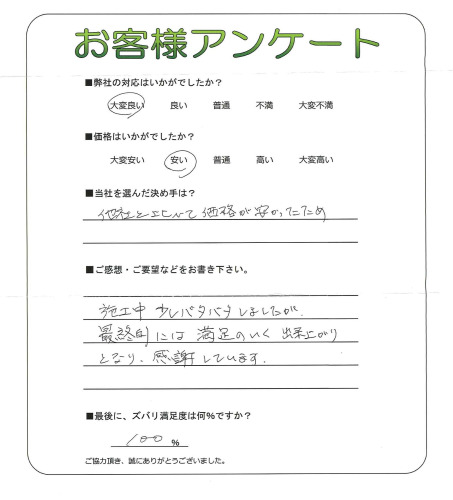 お客様アンケート
■弊社の対応はいかがでしたか？
大変良い 良い 普通 不満 大変不満
■価格はいかがでしたか？
大変安い 安い 普通 高い 大変高い
■当社を選んだ決め手は？
他社と比べて価格が安かったため
■ご感想・ご要望などをお書き下さい。
施工中 少しバタバタしましたが、
最終的には 満足のいく 出来上がり
となり、感謝しています。
■最後に、ズバリ満足度は何%ですか？
100 %
ご協力頂き、誠にありがとうございました。